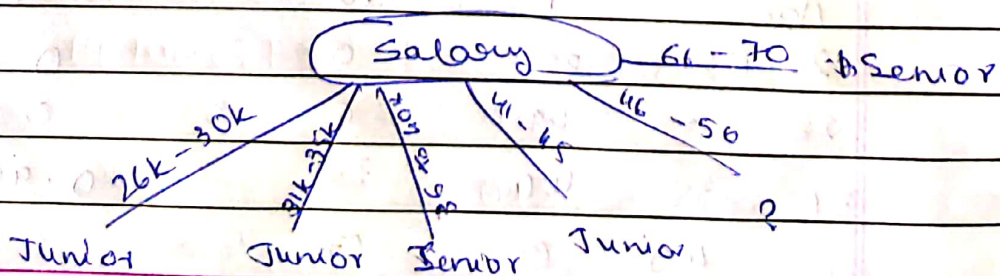 Salary 61 - 70 Senior
26K - 30K 31K - 35K 36 to 40K 41 - 45 46 - 50
?
Junior Junior Senior Junior